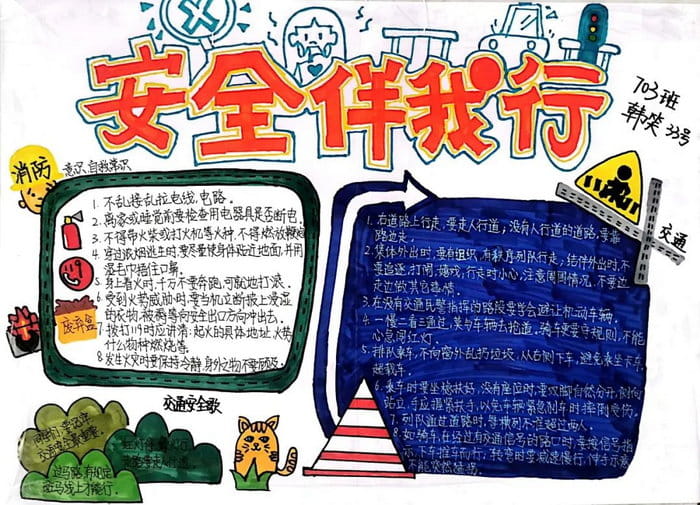 安全伴我行
703班
韩笑 33号
消防
意识 自救常识
1. 不乱接乱拉电线,电路。
2. 离家或睡觉前要检查用电器具是否断电。
3. 不得带火柴或打火机等火种,不得燃放鞭炮
4. 穿过浓烟逃生时,要尽量使身体贴近地面,并用
湿毛巾捂住口鼻。
5. 身上着火时,千万不要奔跑,可就地打滚。
6. 受到火势威胁时,要当机立断披上浸湿
的衣物,被褥等向安全出口方向冲出去。
7. 拨打119时应讲清:起火的具体地址,火势
什么物种燃烧等
8. 发生火灾时要保持冷静,身外之物不要顾及。
废弃盒
交通安全歌
交通
1. 在道路上行走,要走人行道,没有人行道的道路,要靠
路边走。
2. 集体外出时,要有组织,有秩序列队行走,结伴外出时,不
要追逐,打闹,嬉戏,行走时小心,注意周围情况,不要边
走边做其它事情。
3. 在没有交通民警指挥的路段要学会避让机动车辆。
4. 一慢二看三通过,莫与车辆去抢道,骑车更要守规则,不能
心急闯红灯。
5. 排队乘车,不向窗外乱扔垃圾,从右侧下车,避免乘坐卡车,
超载车。
6. 乘车时要坐稳扶好,没有座位时,要双脚自然分开,侧向
站立,手应握紧扶手,以免车辆紧急刹车时摔倒受伤。
7. 列队通过道路时,每横列不准超过两人。
8. 如骑车,在经过有交通信号的路口时,要按信号指
示,下车推车而行;转弯时要减速慢行,伸手示意
不能突然猛拐。
过马路,有规定,
斑马线上才能行。